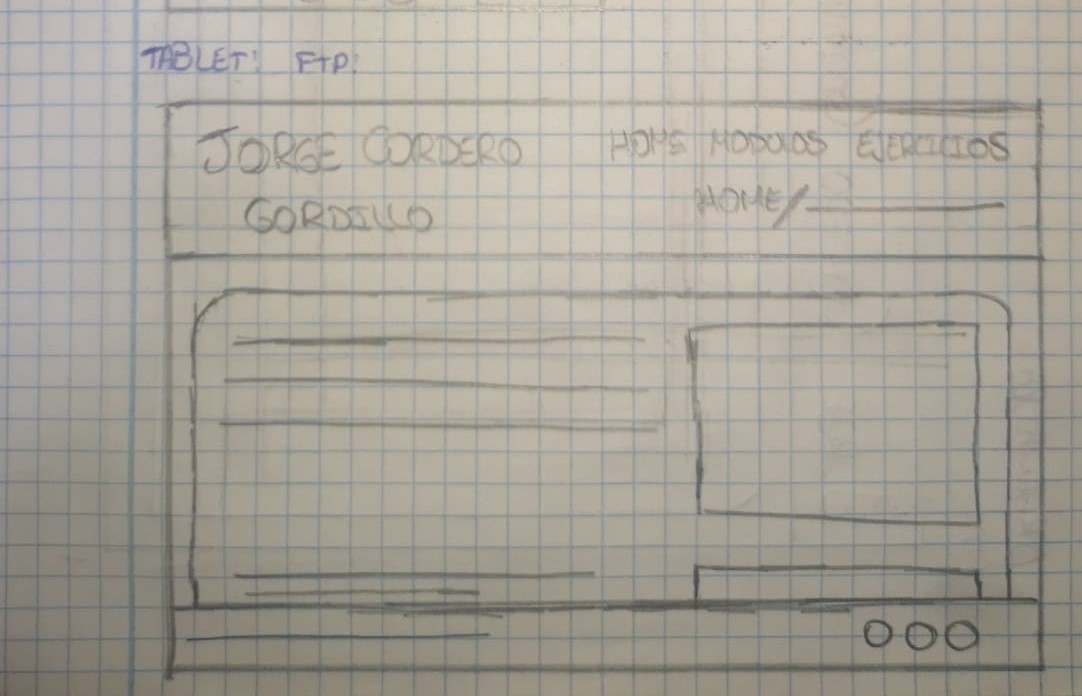 TABLET: FTP:
JORGE CORDERO
GORDILLO
HOME MODULOS EJERCICIOS
HOME/